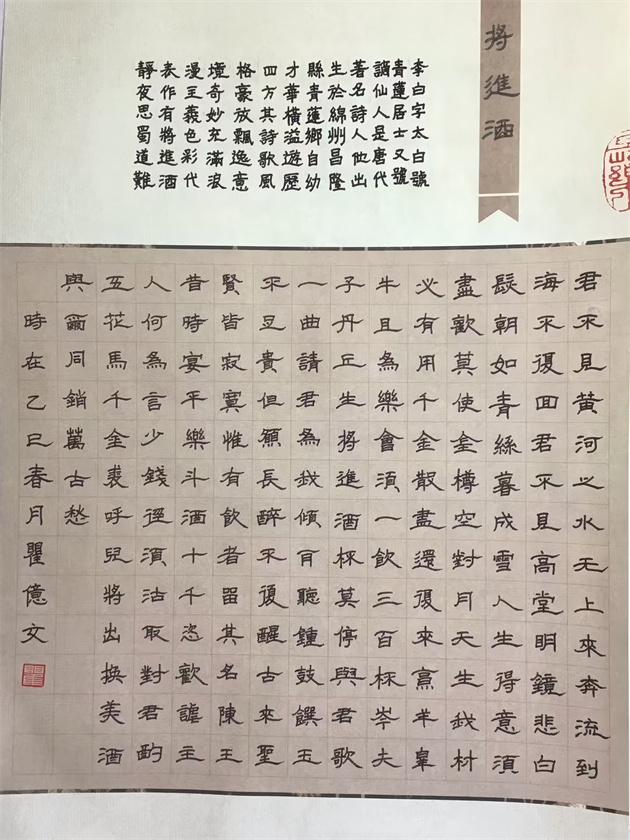 將進酒
李白字太白號
青蓮居士又號
謫仙人是唐代
著名詩人他出
生於綿州昌隆
縣青蓮鄉自幼
才華橫溢遊歷
四方其詩歌風
格豪放飄逸意
境奇妙充滿浪
漫主義色彩代
表作有將進酒
靜夜思蜀道難
君不見黃河之水天上來奔流到
海不復回君不見高堂明鏡悲白
髮朝如青絲暮成雪人生得意須
盡歡莫使金樽空對月天生我材
必有用千金散盡還復來烹羊宰
牛且為樂會須一飲三百杯岑夫
子丹丘生將進酒杯莫停與君歌
一曲請君為我傾耳聽鍾鼓饌玉
不足貴但願長醉不復醒古來聖
賢皆寂寞惟有飲者留其名陳王
昔時宴平樂斗酒十千恣歡謔主
人何為言少錢徑須沽取對君酌
五花馬千金裘呼兒將出換美酒
與爾同銷萬古愁
時在乙巳春月瞿億文